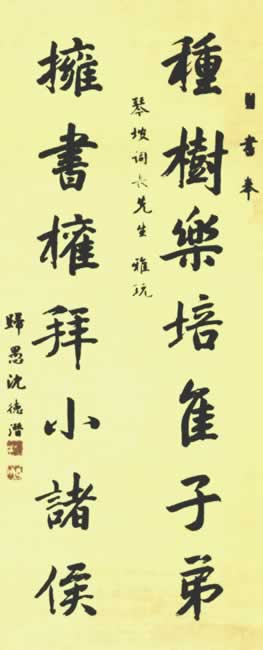 書奉
種樹樂培雋子弟
琴坡詞長先生 雅玩
擁書權拜小諸侯
歸愚沈德潛